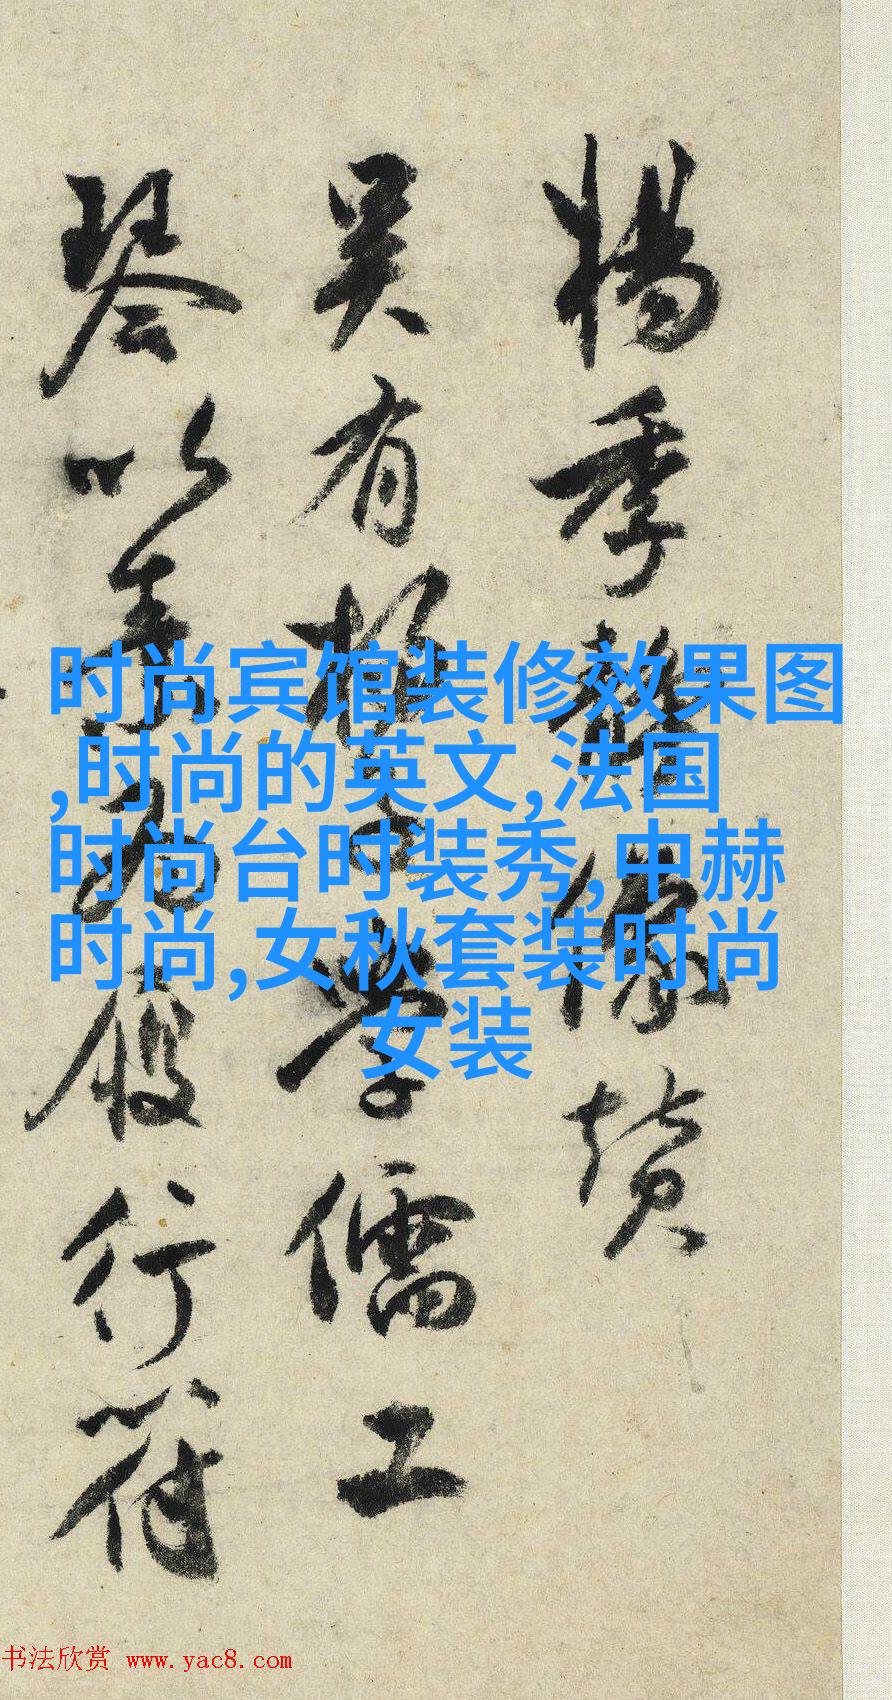 楊季靜像贊
吳有楊子學儒工
琴以孝為履行符
时尚宾馆装修效果图
,时尚的英文,法国
时尚台时装秀,中赫
时尚,女秋套装时尚
女装
书法欣赏 www.yac8.com